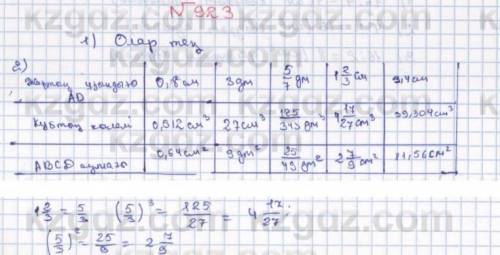 № 923
1) Олар тең
2)
Жақтың ұзындығы AD | 0,8 см | 3 дм | 5/7 дм | 1 2/3 см | 3,4 см
Кубтың көлемі | 0,512 см³ | 27 см³ | 125/343 дм³ | 4 17/27 см³ | 39,304 см³
ABCD ауданы | 0,64 см² | 9 дм² | 25/49 дм² | 2 7/9 см² | 11,56 см²
1 2/3 = 5/3 (5/3)³ = 125/27 = 4 17/27;
(5/3)² = 25/9 = 2 7/9
kzgaz.com